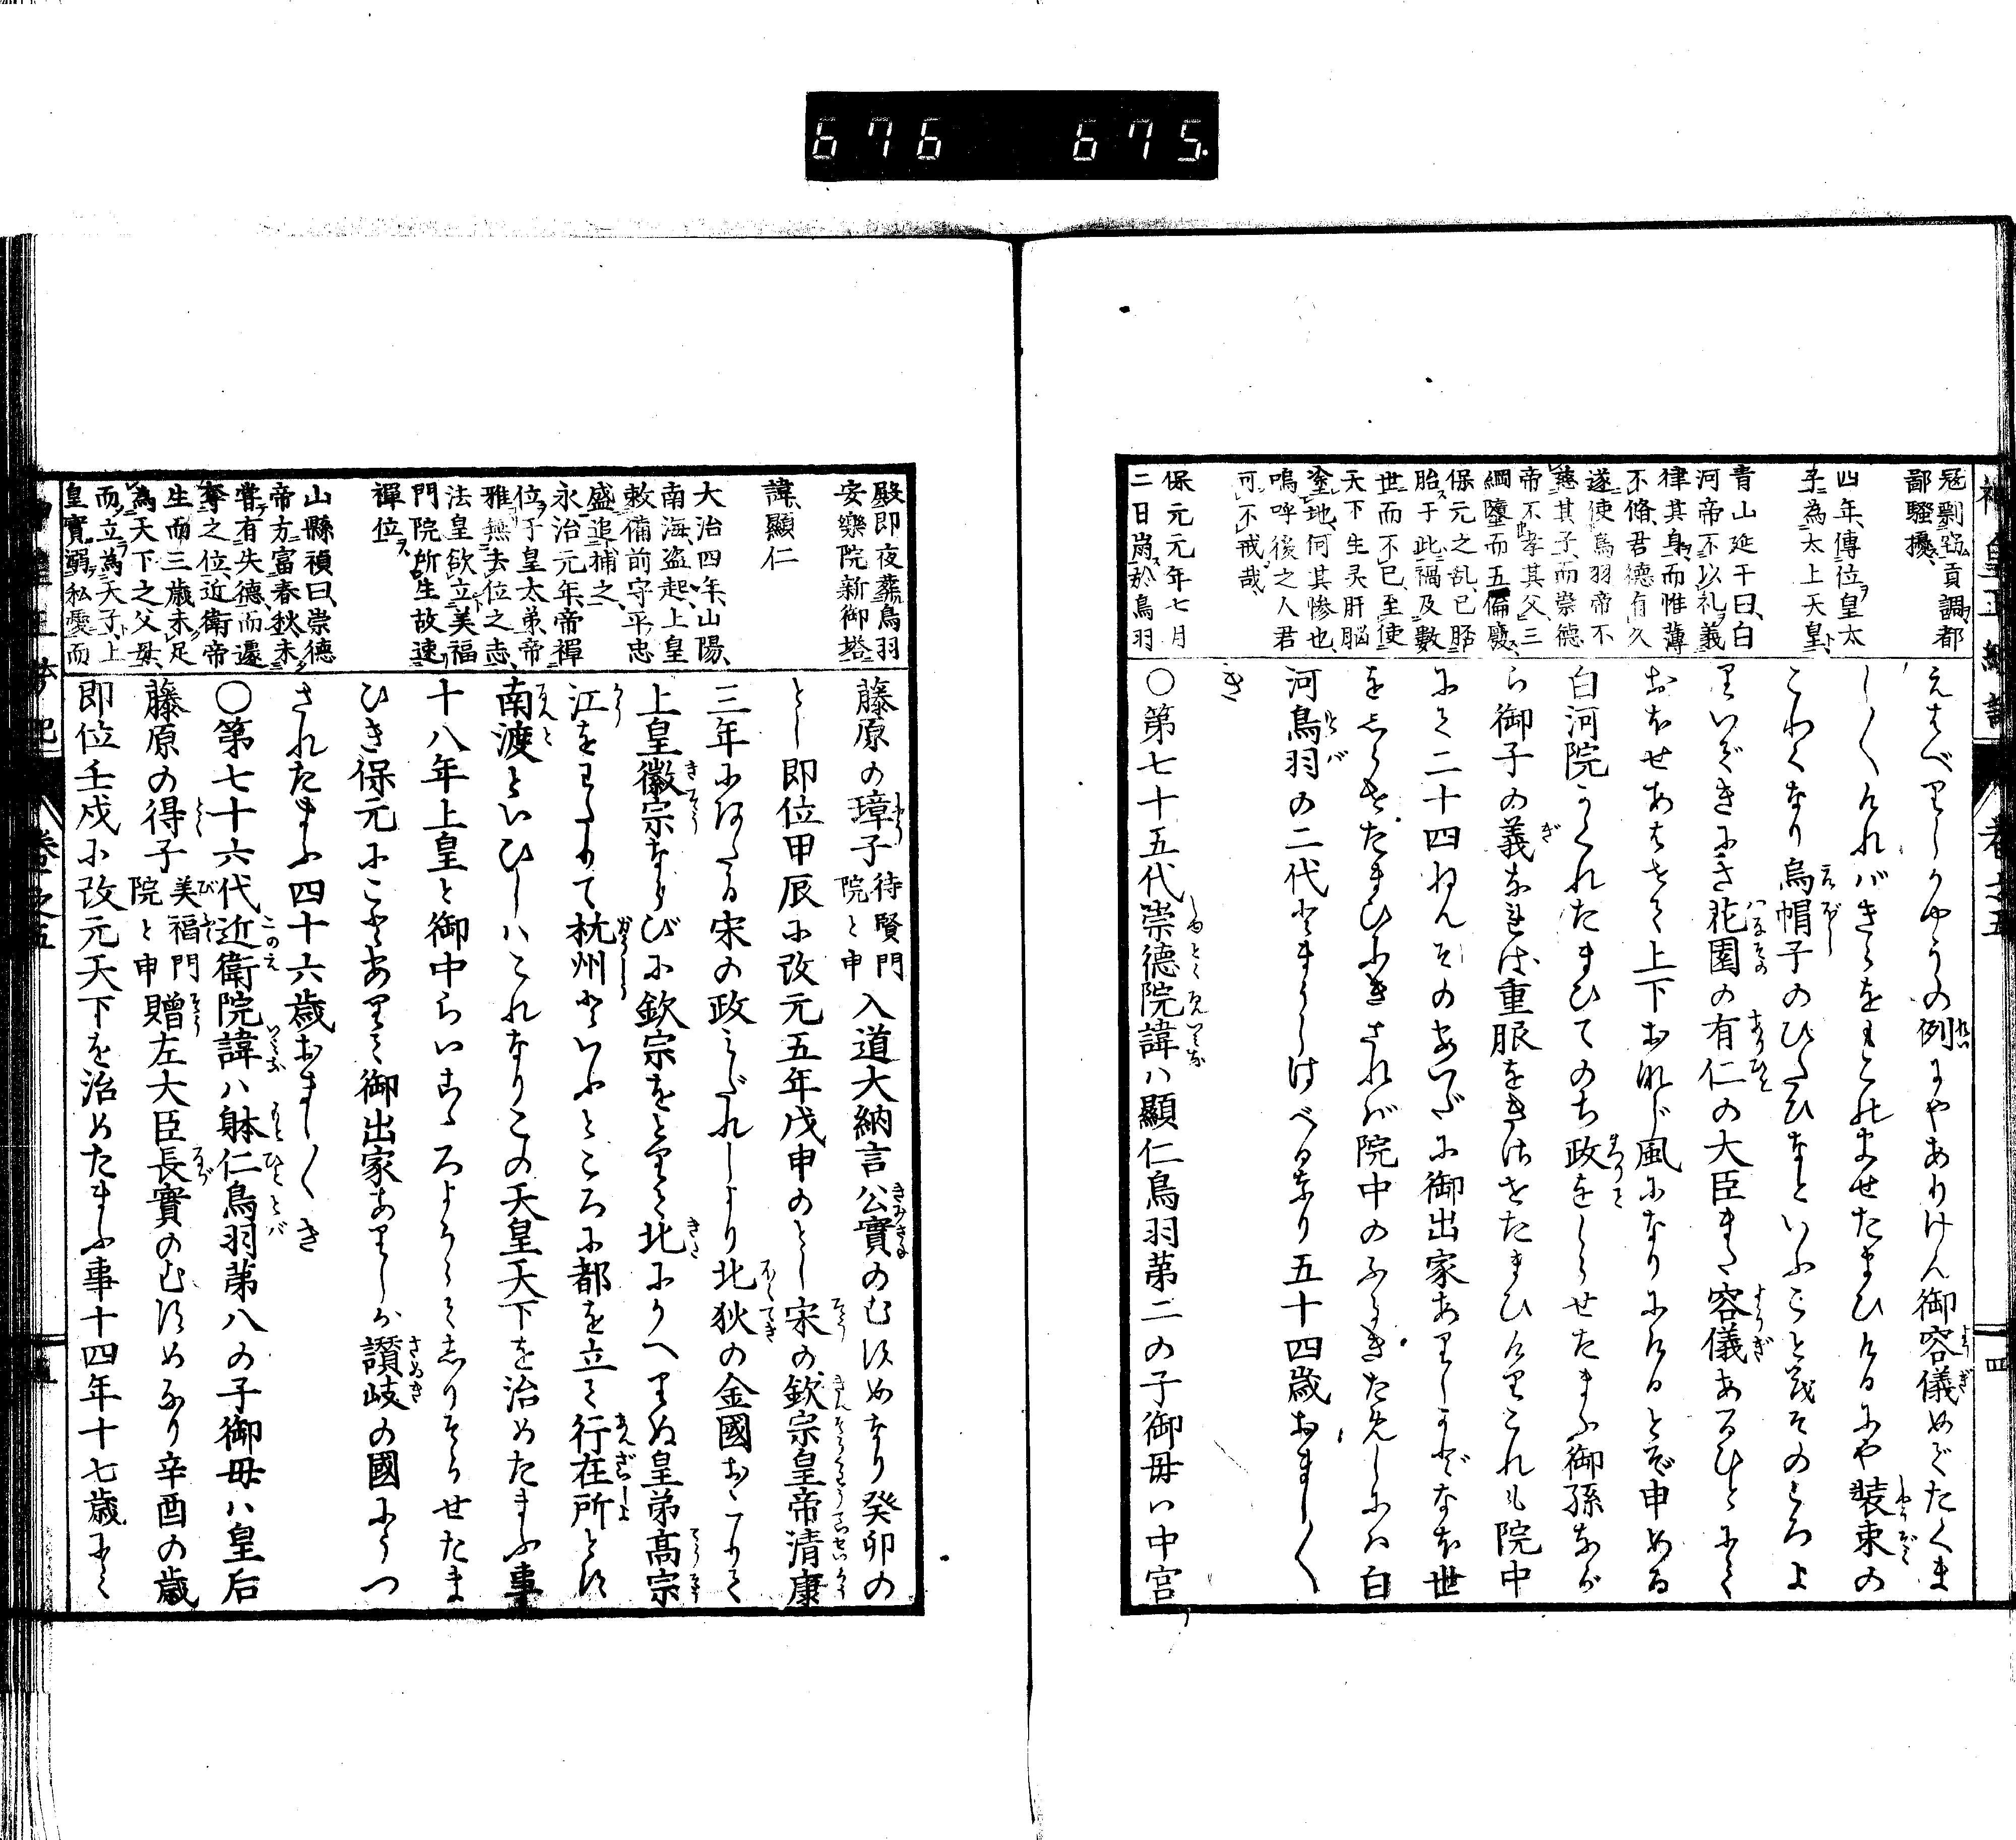 676 675
冠剽刧貢調都
鄙騷擾
四年傳位皇太
子為太上天皇
青山延于曰白
河帝不以礼義
律其身而惟薄
不脩君德有久
遂使鳥羽帝不
慈其子而崇德
帝不孝其父三
綱墮而五倫廢
保元之乱已胚
胎于此禍及數
世而不已至使
天下生灵肝脳
塗地何其惨也
嗚呼後之人君
可不戒哉
保元元年七月
二日崩於鳥羽
えはべりしかやうの例にやありけん御容儀めでたくま
しく〳〵ければきらをもこのませたまひけるにや装束の
こわくなり烏帽子のひたひなといふことも其のころよ
りいできにき花園の有仁の大臣また容儀あるひとにて
おほせあはせて上下おなじ風になりにけるとぞ申める
白河院かくれたまひてのち政をしらせたまふ御孫なが
ら御子の義なれば重服をきせたまひけりこれも院中
にて二十四ねんそのあひだに御出家ありしかどなほ世
をしらせたまひきされば院中のふるきためしには白
河鳥羽の二代をまうしはべるなり五十四歳おまし〳〵
き
〇第七十五代崇德院諱ハ顯仁鳥羽第二の子御母ハ中宮
殿即夜葬鳥羽
安樂院新御塔
諱顯仁
大治四年山陽
南海盗起上皇
敕備前守平忠
盛追捕之
永治元年帝禪
位于皇太弟帝
雅無去位之志
法皇欲立美福
門院所生故速
禪位
山縣禎曰崇德
帝方富春秋未
嘗有失德而遽
奪之位近衛帝
生而三歳未足
為天下之父母
而立為天子上
皇實溺私愛而
藤原の璋子待賢門院と申入道大納言公實のむすめなり癸卯の
とし即位甲辰に改元五年戊申のとし宋の欽宗皇帝清康
三年にあたる宋の政みだれしより北狄の金國おこりて
上皇徽宗ならびに欽宗をとりて北にかへりぬ皇弟高宗
江をわたりて杭州といふところに都を立て行在所とす
南渡といひしハこれなりこの天皇天下を治めたまふ事
十八年上皇と御中らいこゝろよからでしりぞかせたま
ひき保元にことありて御出家ありしが讃岐の國にうつ
されたまふ四十六歳おまし〳〵き
〇第七十六代近衛院諱ハ躰仁鳥羽第八の子御母ハ皇后
藤原の得子美福門院と申贈左大臣長實のむすめなり辛酉の歳
即位壬戌に改元天下を治めたまふ事十四年十七歳にて